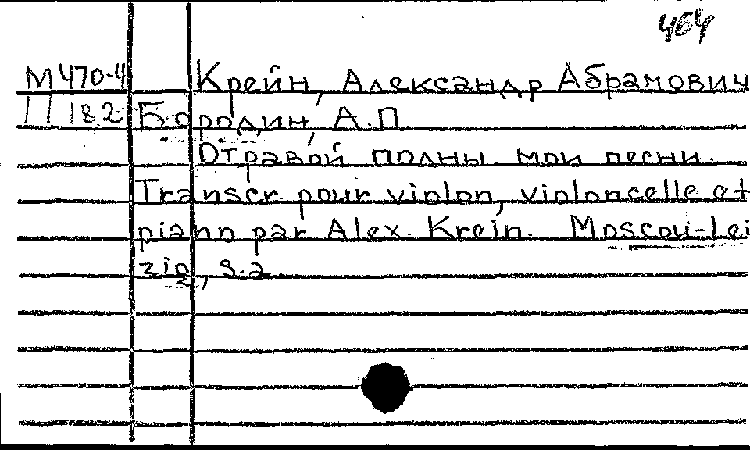 464
М470-4 Крейн, Александр Абрамович
П 182 Бородин, А.П.
Отравой полны мои песни.
Transcr pour violon, violoncelle et
piano par Alex. Krein. Moscou-Lei
zig, s.a